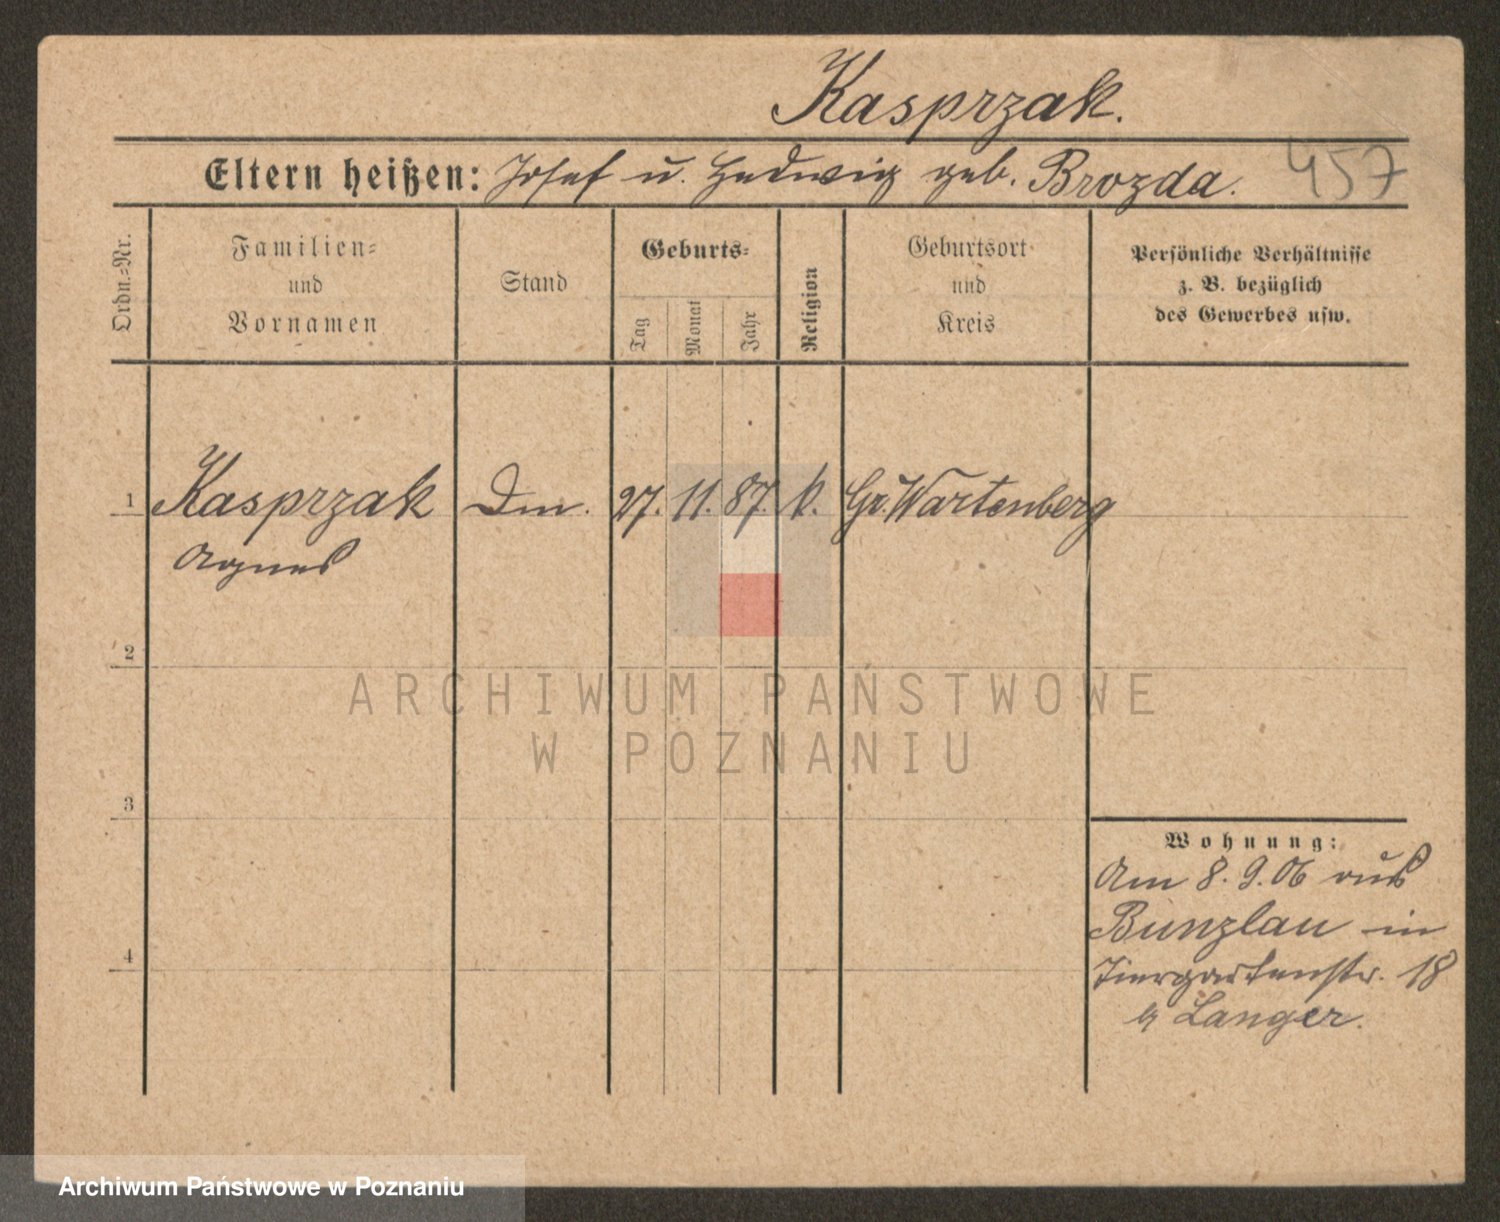 Kasprzak.
Eltern heißen: Josef u. Hedwig geb. Brozda.
457
Ordn.-Nr.
Familien-
und
Vornamen
Stand
Geburts-
Tag
Monat
Jahr
Religion
Geburtsort
und
Kreis
Persönliche Verhältnisse
z. B. bezüglich
des Gewerbes usw.
1 Kasprzak 27. 11. 87. k. Gr. Wartenberg
Agnes
2
ARCHIWUM PAŃSTWOWE
W POZNANIU
3
Wohnung:
Am 8.9.06 aus
Bunzlau in
4
Tiergartenstr. 18
Langer.
Archiwum Państwowe w Poznaniu